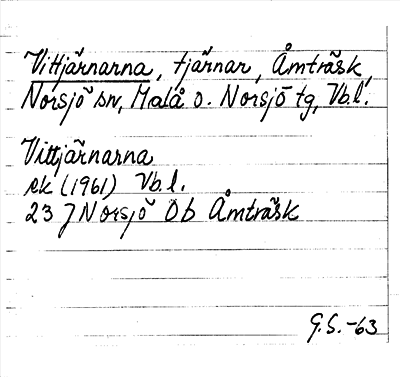 Vittjärnarna, tjärnar, Åmträsk,
Norsjö sn, Malå o. Norsjö tg, Vb.l.
Vittjärnarna
ek (1961) Vb.l.
23 J Norsjö Ob Åmträsk
G.S. -63